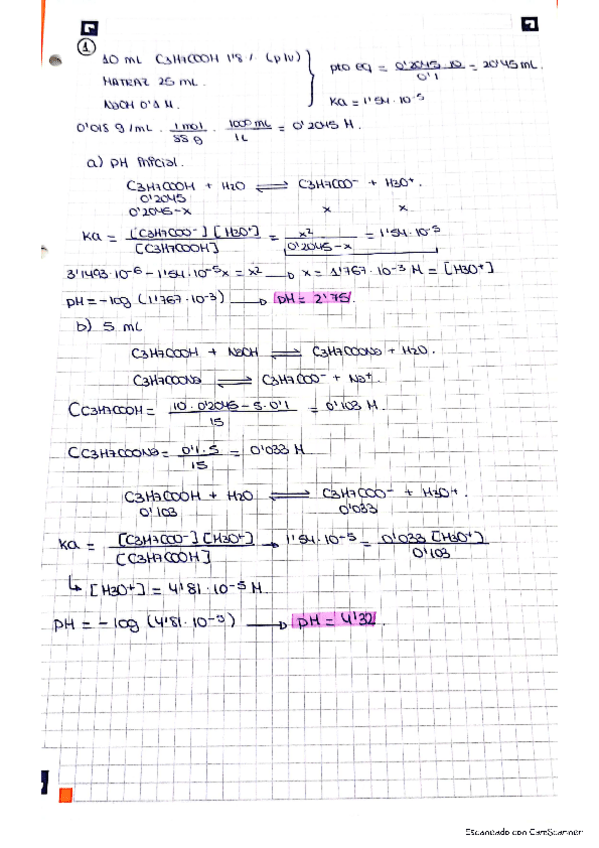 1
10 mL C3H7COOH 1'8 % (p/v)
MATRAZ 25 mL.
NaOH 0'1 M.
pto eq = 0'2045 · 10 / 0'1 = 20'45 mL.
Ka = 1'54 · 10-5
0'018 g/mL · 1 mol / 88 g · 1000 mL / 1L = 0'2045 M.
a) pH inicial.
C3H7COOH + H2O ⇌ C3H7COO- + H3O+.
0'2045
0'2045-x x x
Ka = [C3H7COO-] [H3O+] / [C3H7COOH] = x² / 0'2045-x = 1'54 · 10-5
3'1493 · 10-6 - 1'54 · 10-5x = x² → x = 1'767 · 10-3 M = [H3O+]
pH = -log (1'767 · 10-3) → pH = 2'75.
b) 5 mL
C3H7COOH + NaOH ⇌ C3H7COONa + H2O.
C3H7COONa ⇌ C3H7COO- + Na+.
CC3H7COOH = 10 · 0'2045 - 5 · 0'1 / 15 = 0'103 M.
CC3H7COONa = 0'1 · 5 / 15 = 0'033 M
C3H7COOH + H2O ⇌ C3H7COO- + H3O+.
0'103 0'033
Ka = [C3H7COO-] [H3O+] / [C3H7COOH] → 1'54 · 10-5 = 0'033 [H3O+] / 0'103
↳ [H3O+] = 4'81 · 10-5 M.
pH = - log (4'81 · 10-5) → pH = 4'32.
Escaneado con CamScanner